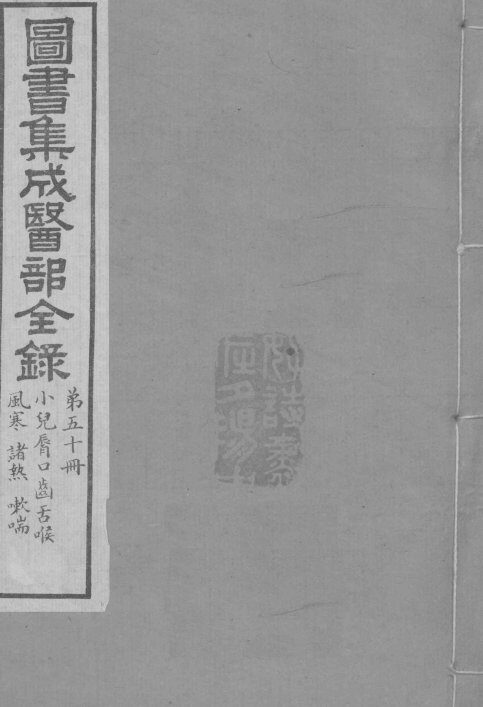 圖書集成醫部全錄
第五十冊
小兒脣口齒舌喉
風寒 諸熱 嗽喘